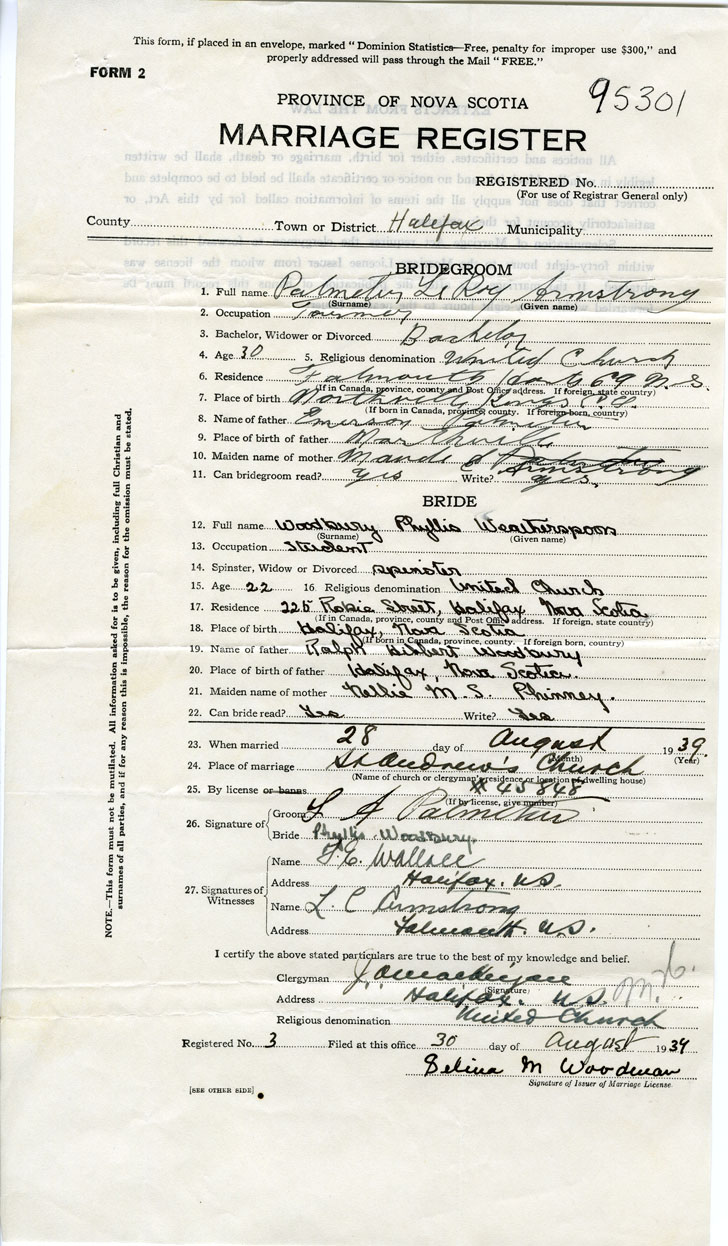 This form, if placed in an envelope, marked "Dominion Statistics—Free, penalty for improper use $300," and
properly addressed will pass through the Mail "FREE."
FORM 2
95301
PROVINCE OF NOVA SCOTIA
MARRIAGE REGISTER
REGISTERED No.
(For use of Registrar General only)
County Town or District Halifax Municipality
BRIDEGROOM
1. Full name Palmeter L. Roy Armstrong
(Surname) (Given name)
2. Occupation Farmer
3. Bachelor, Widower or Divorced Bachelor
4. Age 30 5. Religious denomination United Church
6. Residence Falmouth N.S.
(If in Canada, province, county and Post Office address. If foreign, state country)
7. Place of birth Northville Kings
(If born in Canada, province, county. If foreign-born, country)
8. Name of father Emerson Palmeter
9. Place of birth of father Northville
10. Maiden name of mother Maude Armstrong
11. Can bridegroom read? Yes Write? Yes.
BRIDE
12. Full name Woodbury Phyllis Weatherspoon
(Surname) (Given name)
13. Occupation Student
14. Spinster, Widow or Divorced spinster
15. Age 22 16. Religious denomination United Church
17. Residence 225 Robie Street, Halifax Nova Scotia
(If in Canada, province, county and Post Office address. If foreign, state country)
18. Place of birth Halifax, Nova Scotia
(If born in Canada, province, county. If foreign born, country)
19. Name of father Ralph Hibbert Woodbury
20. Place of birth of father Halifax, Nova Scotia.
21. Maiden name of mother Nellie M. S. Phinney.
22. Can bride read? Yes Write? Yes
23. When married 28 day of August 1939
(Month) (Year)
24. Place of marriage St Andrew's Church
(Name of church or clergyman's residence or location of dwelling house)
25. By license or banns #45848
(If by license, give number)
26. Signature of Groom L A Palmeter
Bride Phyllis Woodbury.
27. Signatures of Witnesses
Name F. E. Wallace
Address Halifax. N.S.
Name L C Armstrong
Address Falmouth N.S.
I certify the above stated particulars are true to the best of my knowledge and belief.
Clergyman
(Signature)
Address Halifax. N.S.
Religious denomination United Church
Registered No. 3 Filed at this office 30 day of August 1939
Selina M Woodman
Signature of Issuer of Marriage License
[SEE OTHER SIDE]
NOTE.—This form must not be mutilated. All information asked for is to be given, including full Christian and
surnames of all parties, and if for any reason this is impossible, the reason for the omission must be stated.